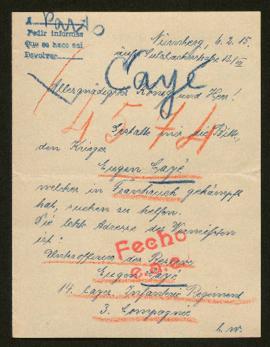 A Paris
Pedir informes
Que se haco así
Devolver
Nürnberg, 6.2.15.
Cayé
Allergnädigster König und Herr!
4574
Gestatte mir die Bitte,
den Krieger
Eugen Cayé
welcher in Frankreich gekämpft
hat, suchen zu helfen.
Die letzte Adresse des Vermißten
ist:
Unteroffizier der Reserve
Fecho
Eugen Cayé
14. bayer. Infanterie Regiment
3. Compagnie
b. w.